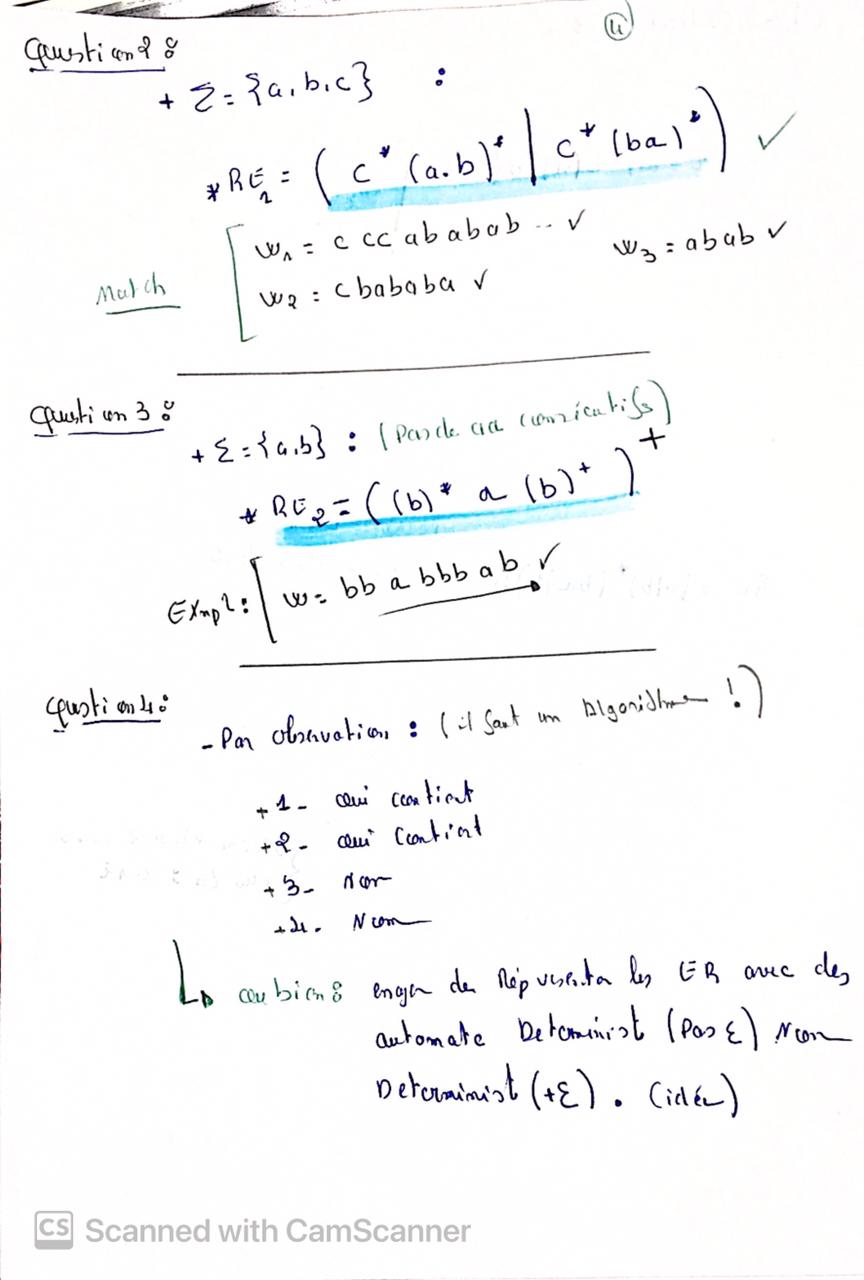 4
Question 2 :
+ Σ = {a, b, c} :
* RE1 = ( c* (a.b)* | c* (ba)* ) ✓
w1 = c cc ababab .. ✓
w3 = abab ✓
Match
w2 = cbababa ✓
Question 3 :
+ Σ = {a,b} : (Pas de aa consécutifs)
* RE2 = ( (b)* a (b)+ )+
Exmpl : w = bb a bbb ab ✓
Question 4 :
- Par observation : (il faut un Algorithme !)
+ 1 - oui contient
+ 2 - oui contient
+ 3 - Non
+ 4 - Non
↳ ou bien : essayer de Représenter les ER avec des
automate Determinist (Pas ε) Non
Determinist (+ε) . (idée)
CS Scanned with CamScanner